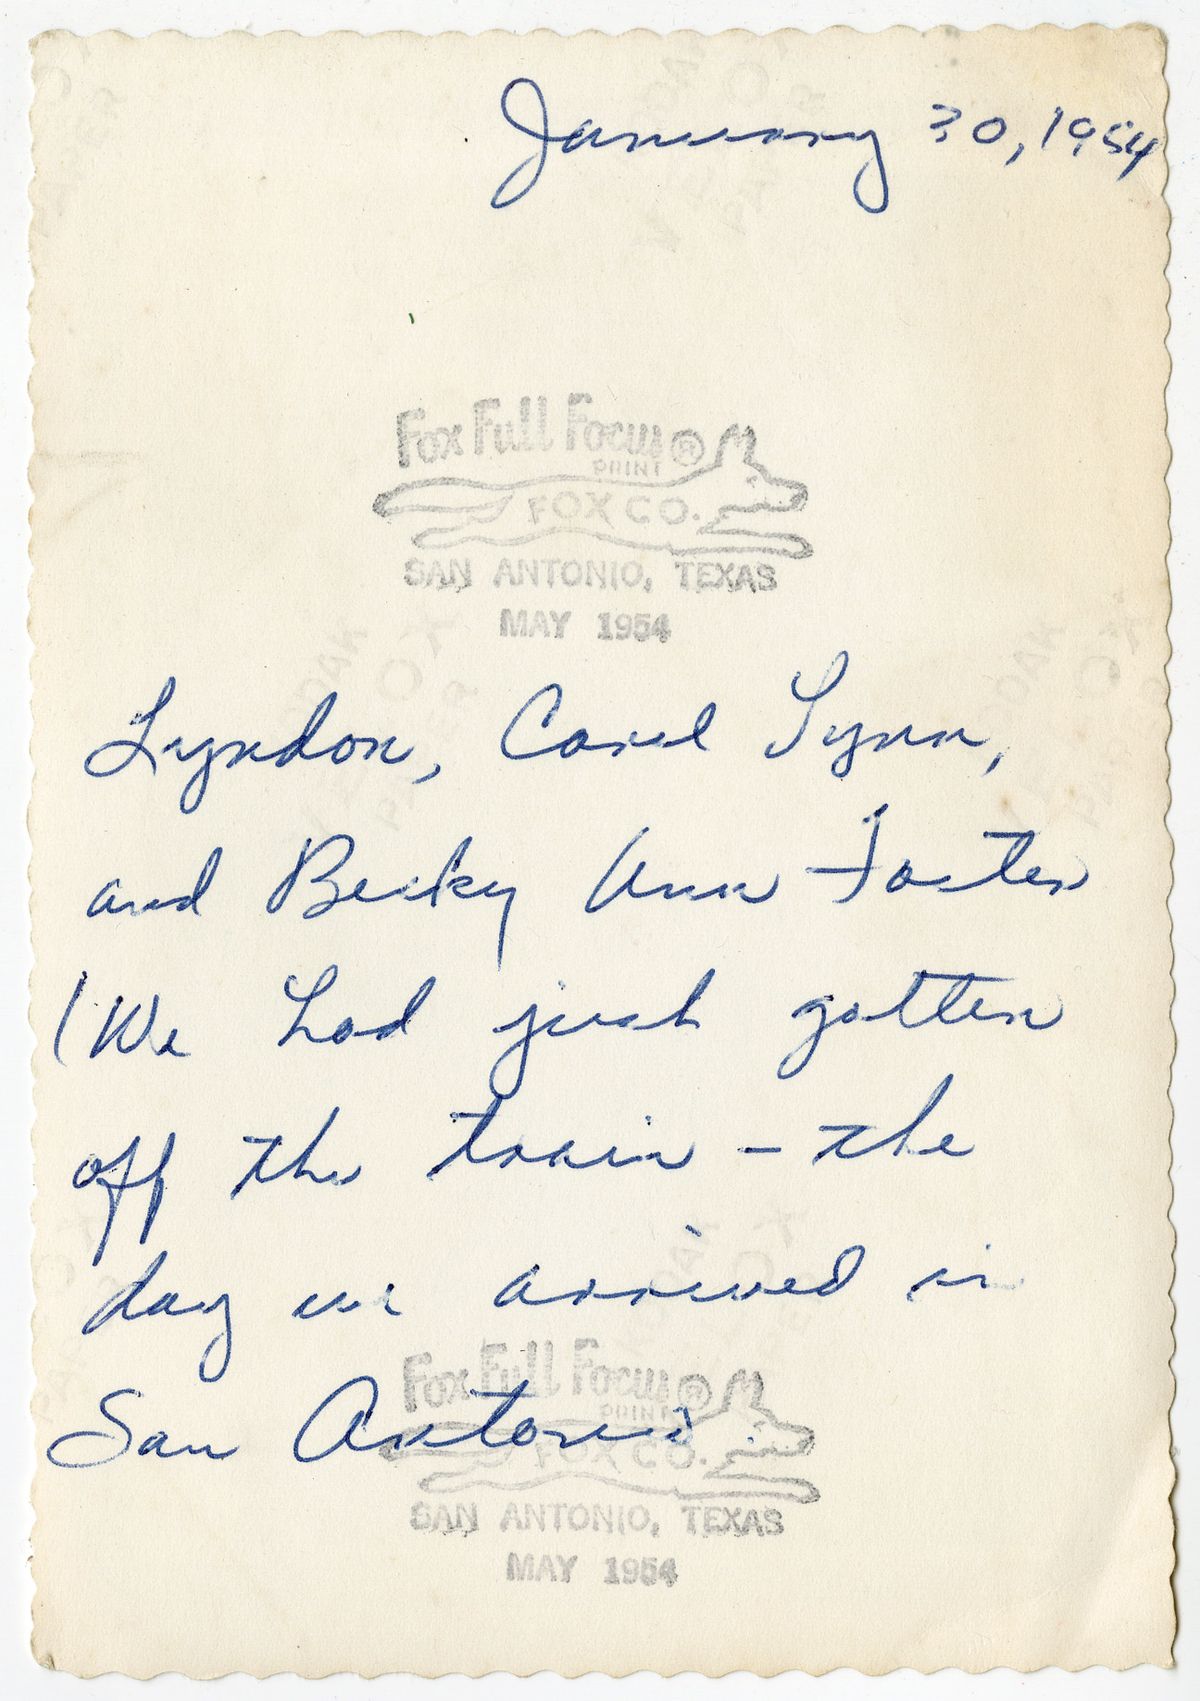 January 30, 1954
Fox Full Focus®
PRINT
FOX CO.
SAN ANTONIO, TEXAS
MAY 1954
Lyndon, Carol Lynn,
and Becky Ann Foster
(We had just gotten
off the train - the
day we arrived in
San Antonio.
Fox Full Focus®
PRINT
FOX CO.
SAN ANTONIO, TEXAS
MAY 1954